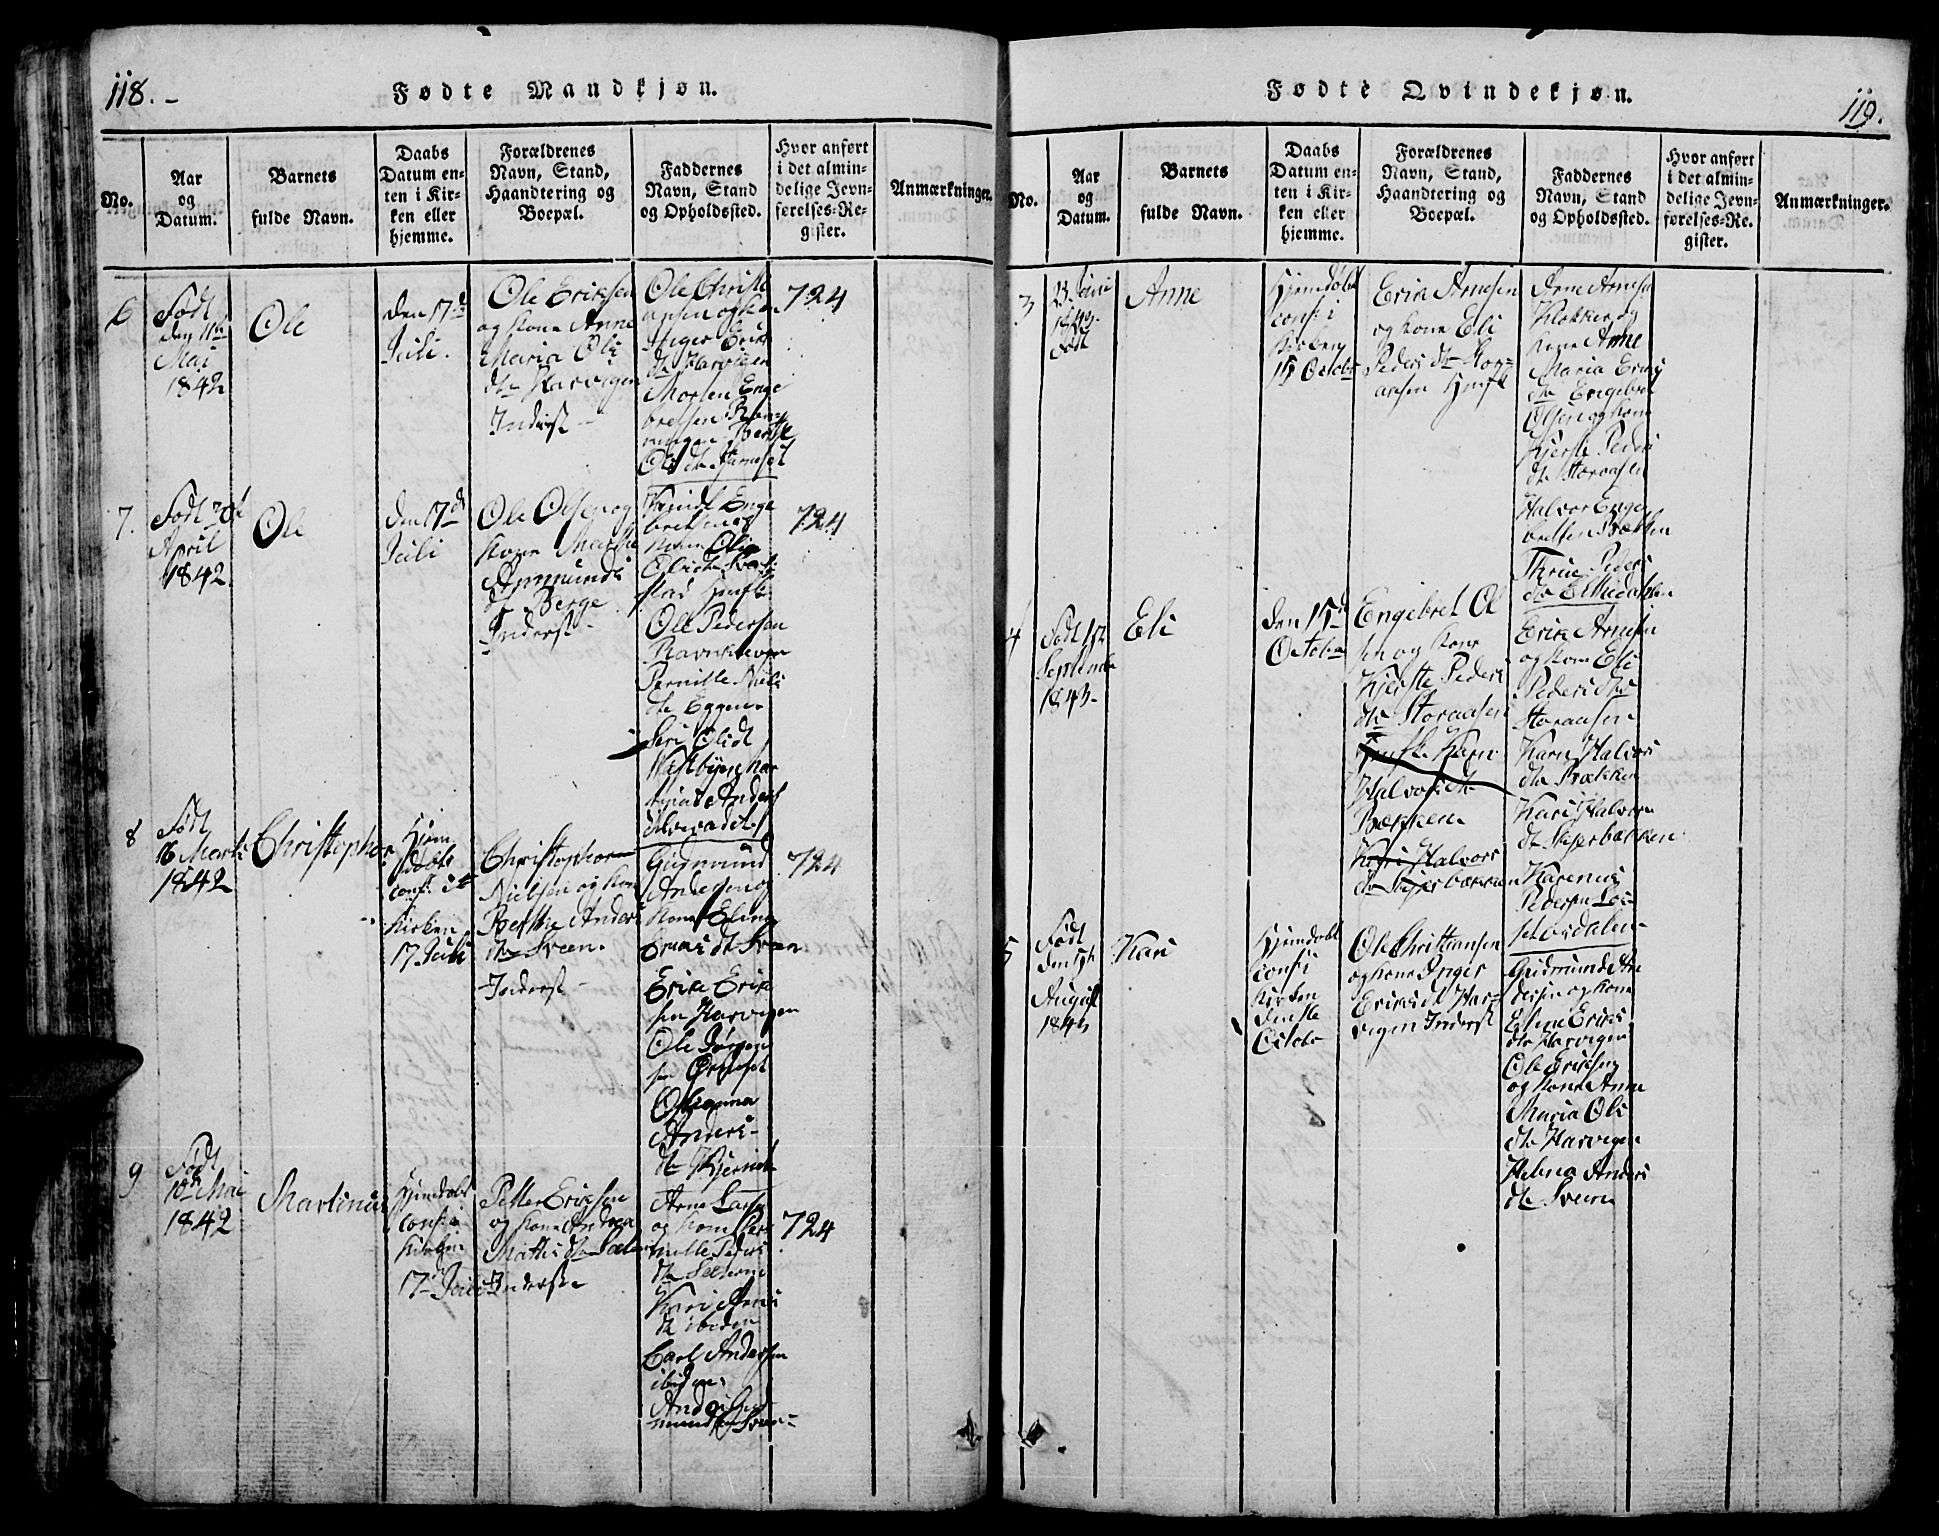 118.-
Fødte Mandkjøn.
No.
Aar
og
Datum.
Barnets
fulde Navn.
Daabs
Datum en-
ten i Kir-
ken eller
hjemme.
Forældrenes
Navn, Stand,
Haandtering og
Boepæl.
Faddernes
Navn, Stand
og Opholdssted.
Hvor anført
i det almin-
delige Jevn-
førelses-Re-
gister.
Anmærkninger.
6
Født
den 11te
Mai
1842
Ole
den 17de
Juli.
Ole Eriksen
og Kone Anne
Maria Ols
dtr Harvigen
Inderst -
Ole Christi
ansen og Kone
Inger Eriks
dtr Harvigen
Morten Enge
bretsen
Berthe
Ols dtr
724
7.
Født 20d
April
1842.
Ole
den 17de
Juli
Ole Olsen og
Kone Marthe
Ammunds
dr Berge
Inderst -
Enge
bretsen og
Kone
Ole Pedersen
Pernille Niels
dtr Eggen
Siri Olsdt
724
8
Født
16 Marts
1842
Christopher
Hjem
døbt
conf: i
Kirken
17 Juli
Christopher
Nielsen og Kone
Berthe Anders
dtr Sveen.
Inderst -
Gudmund
Andersen og
Kone Eline
Eriks dt Sveen
Erik Erik
sen Harvigen
Ole Jørgen
sen
Johanna
Anders-
dtr
724
9
Født
10de Mai
1842
Martinus
Hjemdøbt
conf: i
Kirken
17 Juli
Petter Eriksen
og Kone Andrea
Mathis dtr
Inderste
Arne Larsen
og Kone Per
nille Peders
dtr
Kari Arnes
dt ibiden
Carl Andersen
ibiden
mundsen Sveen-
724
119.
Fødte Qvindekjøn.
No.
Aar
og
Datum.
Barnets
fulde Navn.
Daabs
Datum en-
ten i Kir-
ken eller
hjemme.
Forældrenes
Navn, Stand,
Haandtering og
Boepæl.
Faddernes
Navn, Stand
og Opholdssted.
Hvor anført
i det almin-
delige Jevn-
førelses-Re-
gister.
Anmærkninger.
3
1843.
Født
Anne
Hjemdøbt
conf: i
Kirken
15 Octobr
Erik Arnesen
og Kone Eli
Peders dtr Stor-
aasen Husf
Arne Arnesen
Klokker og
Kone Anne
Maria Eriks
dtr Engebret
Olsen og Kone
Kjersti Peders
dtr Storaasen
Halvor Enge
bretsen Bækken
Peders
dtr
4
Født 1st
Septembr
1843-
Eli
den 15d
October
Engebret Ol
sen og Kone
Kjersti Peders
dtr Storaasen
Husf. Karn
Halvors dtr
Bækken
Kari Halvors
dtr Skjerbækken
Erik Arnesen
og Kone Eli
Peders dtr
Storaasen
Karn Halvors
dtr Bækken
Kari Halvors
dtr Skjerbækken
Karenus
Pedersen
5
Født
August
1843
Kari
Hjemdøbt
conf: i
Kirken
Octobr
Ole Christiansen
og Kone Inger
Eriks dt Har-
vigen Inderst
Gudmund An
dersen og Kone
Eline Eriks
dtr Harvigen
Ole Eriksen
og Kone Anne
Maria Ols
dtr Harvigen
Helena Anders
dtr Sveen